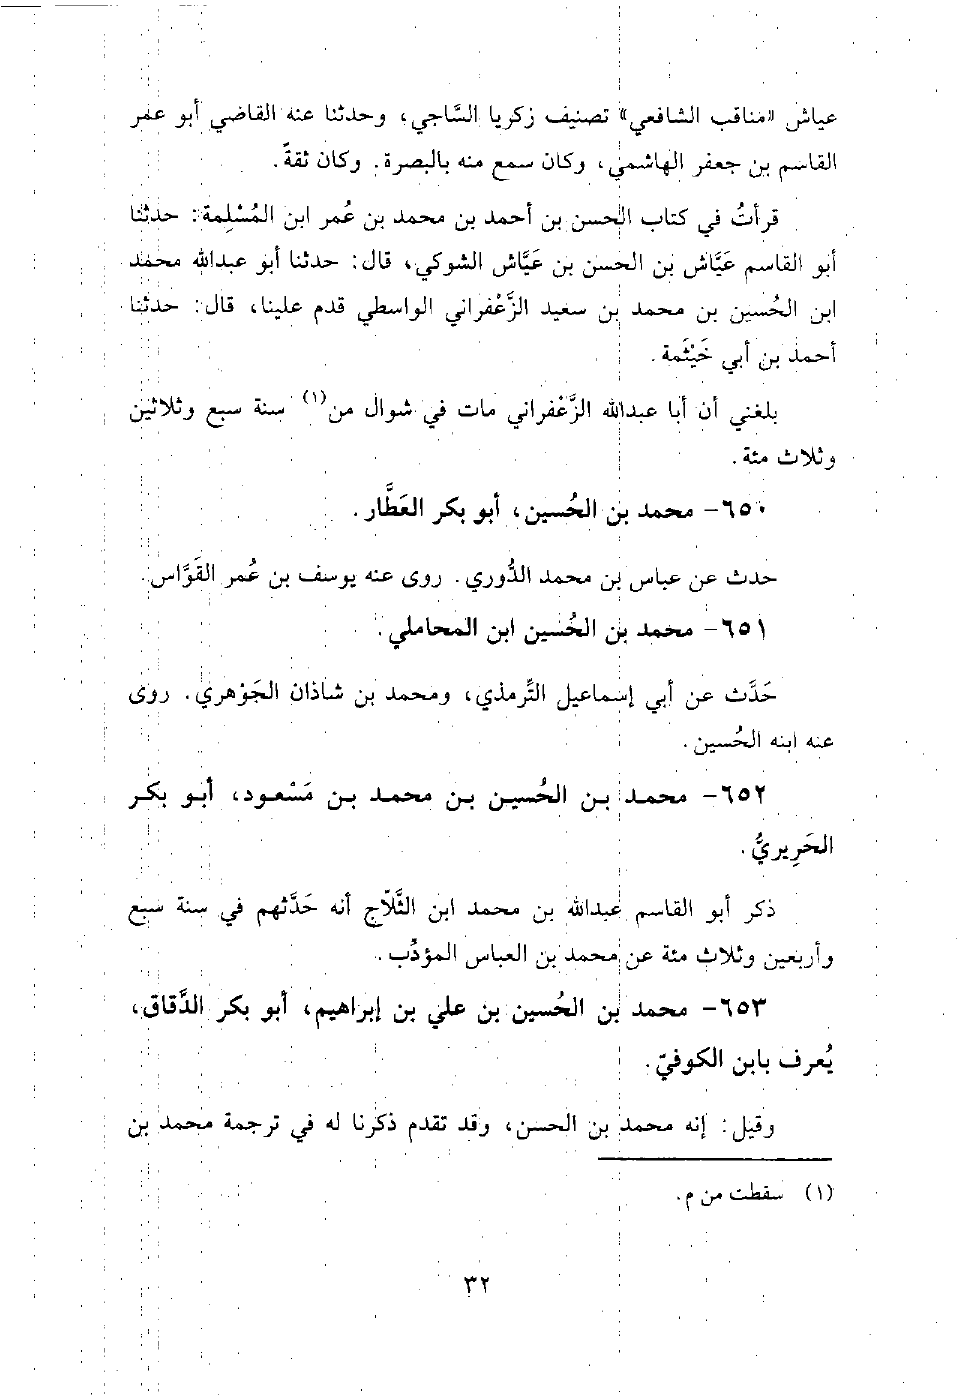 عياش «مناقب الشافعي» تصنيف زكريا السَّاجي، وحدثنا عنه القاضي أبو عمر
القاسم بن جعفر الهاشمي، وكان سمع منه بالبصرة. وكان ثقةً.
قرأتُ في كتاب الحسن بن أحمد بن محمد بن عُمر ابن المُسْلِمة: حدثنا
أبو القاسم عَيَّاش بن الحسن بن عَيَّاش الشوكي، قال: حدثنا أبو عبدالله محمد
ابن الحُسين بن محمد بن سعيد الزَّعْفراني الواسطي قدم علينا، قال: حدثنا
أحمد بن أبي خَيْثَمة.
بلغني أن أبا عبدالله الزَّعْفراني مات في شوال من(١) سنة سبع وثلاثين
وثلاث مئة.
٦٥٠- محمد بن الحُسين، أبو بكر العَطَّار.
حدث عن عباس بن محمد الدُّوري. روى عنه يوسف بن عُمر القَوَّاس.
٦٥١- محمد بن الحُسين ابن المحاملي.
حَدَّث عن أبي إسماعيل التِّرمذي، ومحمد بن شاذان الجَوْهري. روى
عنه ابنه الحُسين.
٦٥٢- محمد بن الحُسين بن محمد بن مَسْعود، أبو بكر
الحَرِيريُّ.
ذكر أبو القاسم عبدالله بن محمد ابن الثَّلاّج أنه حَدَّثهم في سنة سبع
وأربعين وثلاث مئة عن محمد بن العباس المؤدِّب.
٦٥٣- محمد بن الحُسين بن علي بن إبراهيم، أبو بكر الدَّقاق،
يُعرف بابن الكوفيّ.
وقيل: إنه محمد بن الحسن، وقد تقدم ذكرنا له في ترجمة محمد بن
(١) سقطت من م.
٣٢